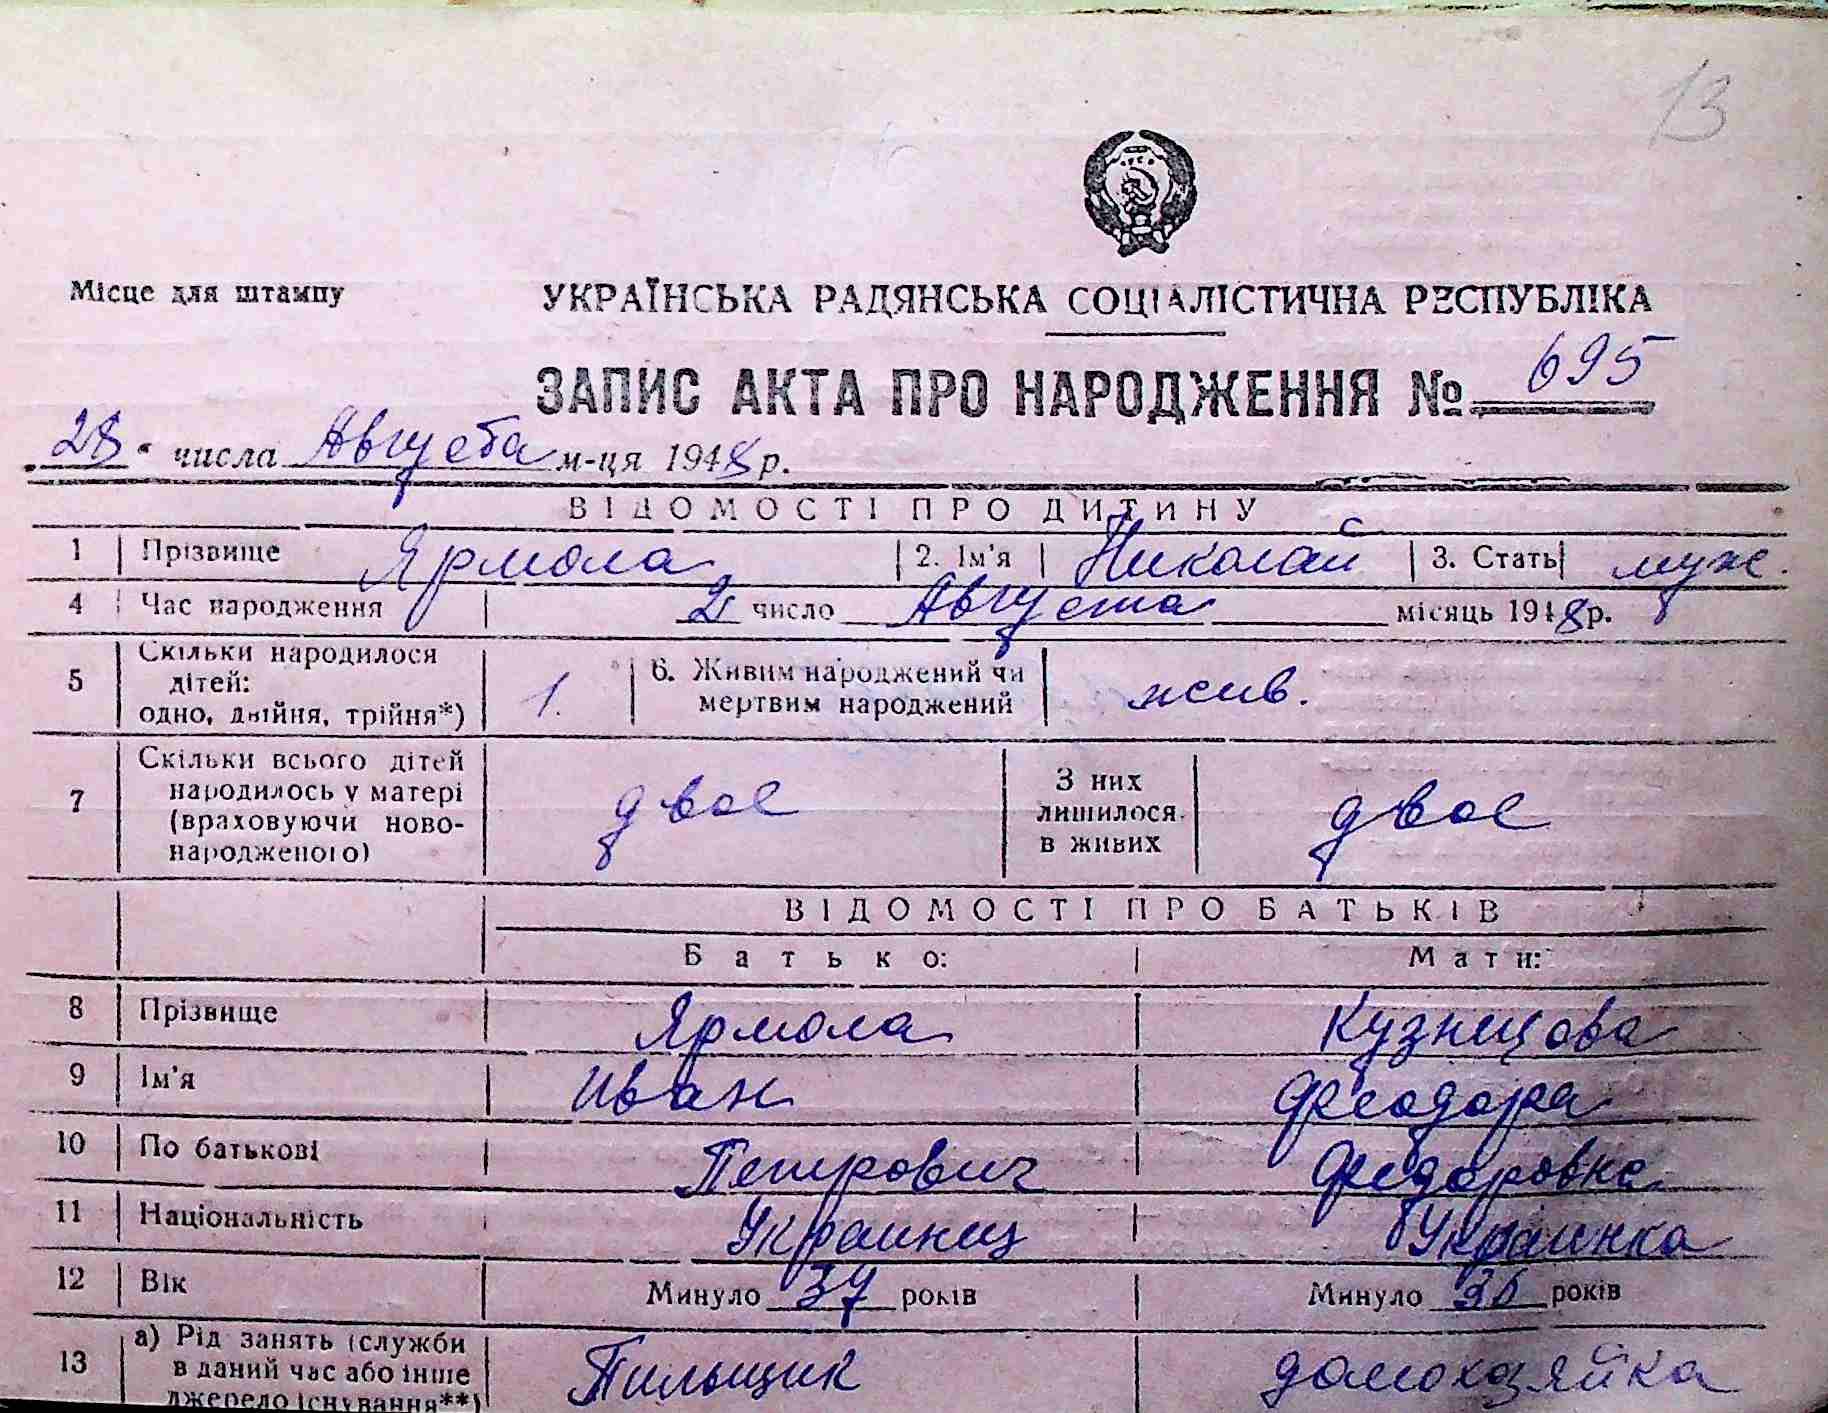 13
Місце для штампу
УКРАЇНСЬКА РАДЯНСЬКА СОЦІАЛІСТИЧНА РЕСПУБЛІКА
ЗАПИС АКТА ПРО НАРОДЖЕННЯ № 695
„28“ числа Августа м-ця 1948 р.
ВІДОМОСТІ ПРО ДИТИНУ
1 Прізвище Ярмола 2. Ім'я Николай 3. Стать муж.
4 Час народження 2 число Августа місяць 1948 р.
5 Скільки народилося дітей: одно, двійня, трійня*) 1. 6. Живим народжений чи мертвим народжений жив.
7 Скільки всього дітей народилось у матері (враховуючи ново-народженого) двое З них лишилося в живих двое
ВІДОМОСТІ ПРО БАТЬКІВ
Батько: Мати:
8 Прізвище Ярмола Кузнецова
9 Ім'я Иван Феодора
10 По батькові Петрович Федоровна
11 Національність Украинец Украинка
12 Вік Минуло 37 років Минуло 36 років
13 а) Рід занять (служби в даний час або інше джерело існування**) Пильщик домохозяйка